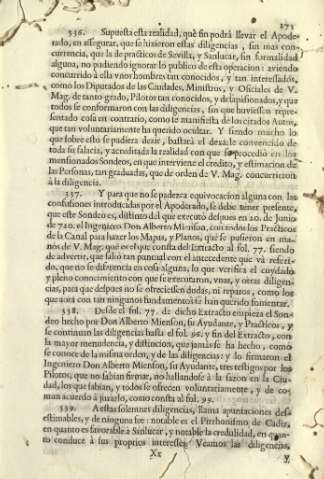 273
336. Supuesta esta realidad, què fin podrà llevar el Apode-
rado, en assegurar, que se hizieron estas diligencias, sin mas con-
currencia, que la de practicos de Sevilla, y Sanlucar, sin formalidad
alguna, no pudiendo ignorar lo publico de esta operacion: aviendo
concurrido à ella vnos hombres tan conocidos, y tan interessados,
como los Diputados de las Ciudades, Ministros, y Oficiales de V.
Mag. de tanto grado, Pilotos tan conocidos, y desapasionados, y que
todos se conformaron con las diligencias, sin que huviessen repre-
sentado cosa en contrario, como se manifiesta de los citados Autos,
que tan voluntariamente ha querido ocultar. Y siendo mucho lo
que sobre esto se pudiera dezir, bastarà el dexarle convencido de
toda su falacia, y acreditada la realidad con que se procediò en los
mencionados Sondeos, en que interviene el credito, y estimacion de
las Personas, tan graduadas, que de orden de V. Mag. concurrieron
à la diligencia.
337. Y para que no se padezca equivocacion alguna con las
confusiones introducidas por el Apoderado, se debe tener presente,
que este Sondeo es, distinto del que executò despues en 20. de Junio
de 720. el Ingeniero Don Alberto Mienson, con todos los Practicos
de la Canal para hacer los Mapas, y Planos, què se pusieron en ma-
nos de V. Mag. què es el que consta del Extracto al fol. 77. siendo
de advertir, que saliò tan puntual con el antecedente que và referi-
do, que no se diferencia en cosa alguna, lo que verifica el cuydado
y pleno conocimiento con que se executaron, vnas, y otras diligen-
cias, para que despues no se ofreciessen dudas, ni reparos, como los
que aora con tan ningunos fundamentos se han querido fomentar.
338. Desde el fol. 77. de dicho Extracto empieza el Son-
deo hecho por Don Alberto Mienson, su Ayudante, y Practicos, y
se continuan las diligencias hasta el fol. 95. y fin del Extracto, con
la mayor menudencia, y distincion, que jamàs se ha hecho, como
se conoce de la misma orden, y de las diligencias: y lo firmaron el
Ingeniero Don Alberto Mienson, su Ayudante, tres testigos por los
Pilotos, que no sabian firmar, no hallandose à la sazon en la Ciu-
dad, los que sabian, y todos se ofrecen voluntariamente, y de co-
mun acuerdo à jurarlo, como consta al fol. 95.
339. A estas solemnes diligencias, llama apuntaciones des-
estimables, y de ninguna fee: notable es el Pirrhonismo de Cadiz,
en quanto es favorable à Sanlucar, y notable la credulidad, en quan-
to conduce à sus proprios interesses. Veamos las diligencias,
Xx
y